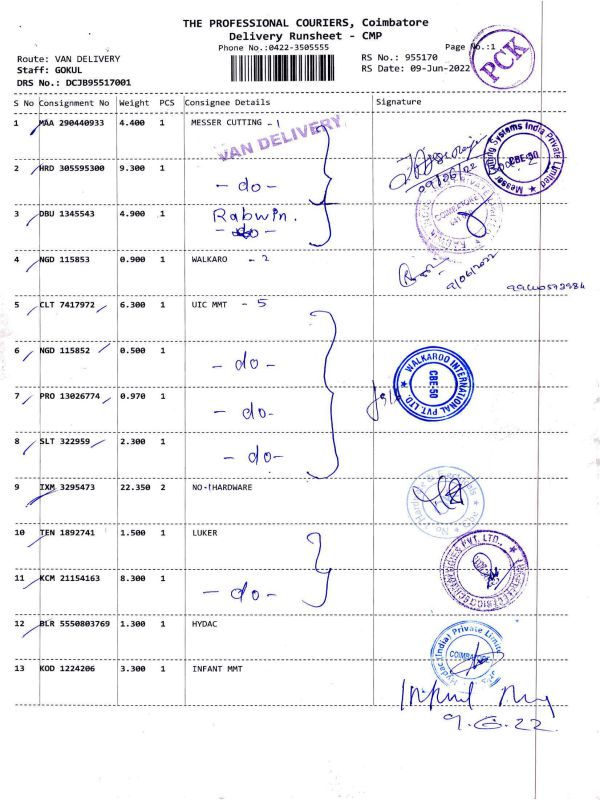 THE PROFESSIONAL COURIERS, Coimbatore
Delivery Runsheet - CMP
Phone No.:0422-3505555
Page No.:1
PCK
Route: VAN DELIVERY
RS No.: 955170
Staff: GOKUL
RS Date: 09-Jun-2022
DRS No.: DCJB95517001
S No Consignment No Weight PCS Consignee Details Signature
1 MAA 290440933 4.400 1 MESSER CUTTING - 1
VAN DELIVERY
2 HRD 305595300 9.300 1
- do -
09/06/22
CBE-50
3 DBU 1345543 4.900 1 Rabwin.
- do -
COIMBATORE
4 NGD 115853 0.900 1 WALKARO - 2
9/06/2022
5 CLT 7417972 6.300 1 UIC MMT - 5
6 NGD 115852 0.500 1
- do -
WALKAROO INTERNATIONAL PVT. LTD.
CBE-50
7 PRO 13026774 0.970 1
- do -
8 SLT 322959 2.300 1
- do -
9 IXM 3295473 22.350 2 NO-1HARDWARE
10 TEN 1892741 1.500 1 LUKER
11 KCM 21154163 8.300 1
- do -
12 BLR 5550803769 1.300 1 HYDAC
Hydac (India) Private Limite
13 KOD 1224206 3.300 1 INFANT MMT
9.6.22